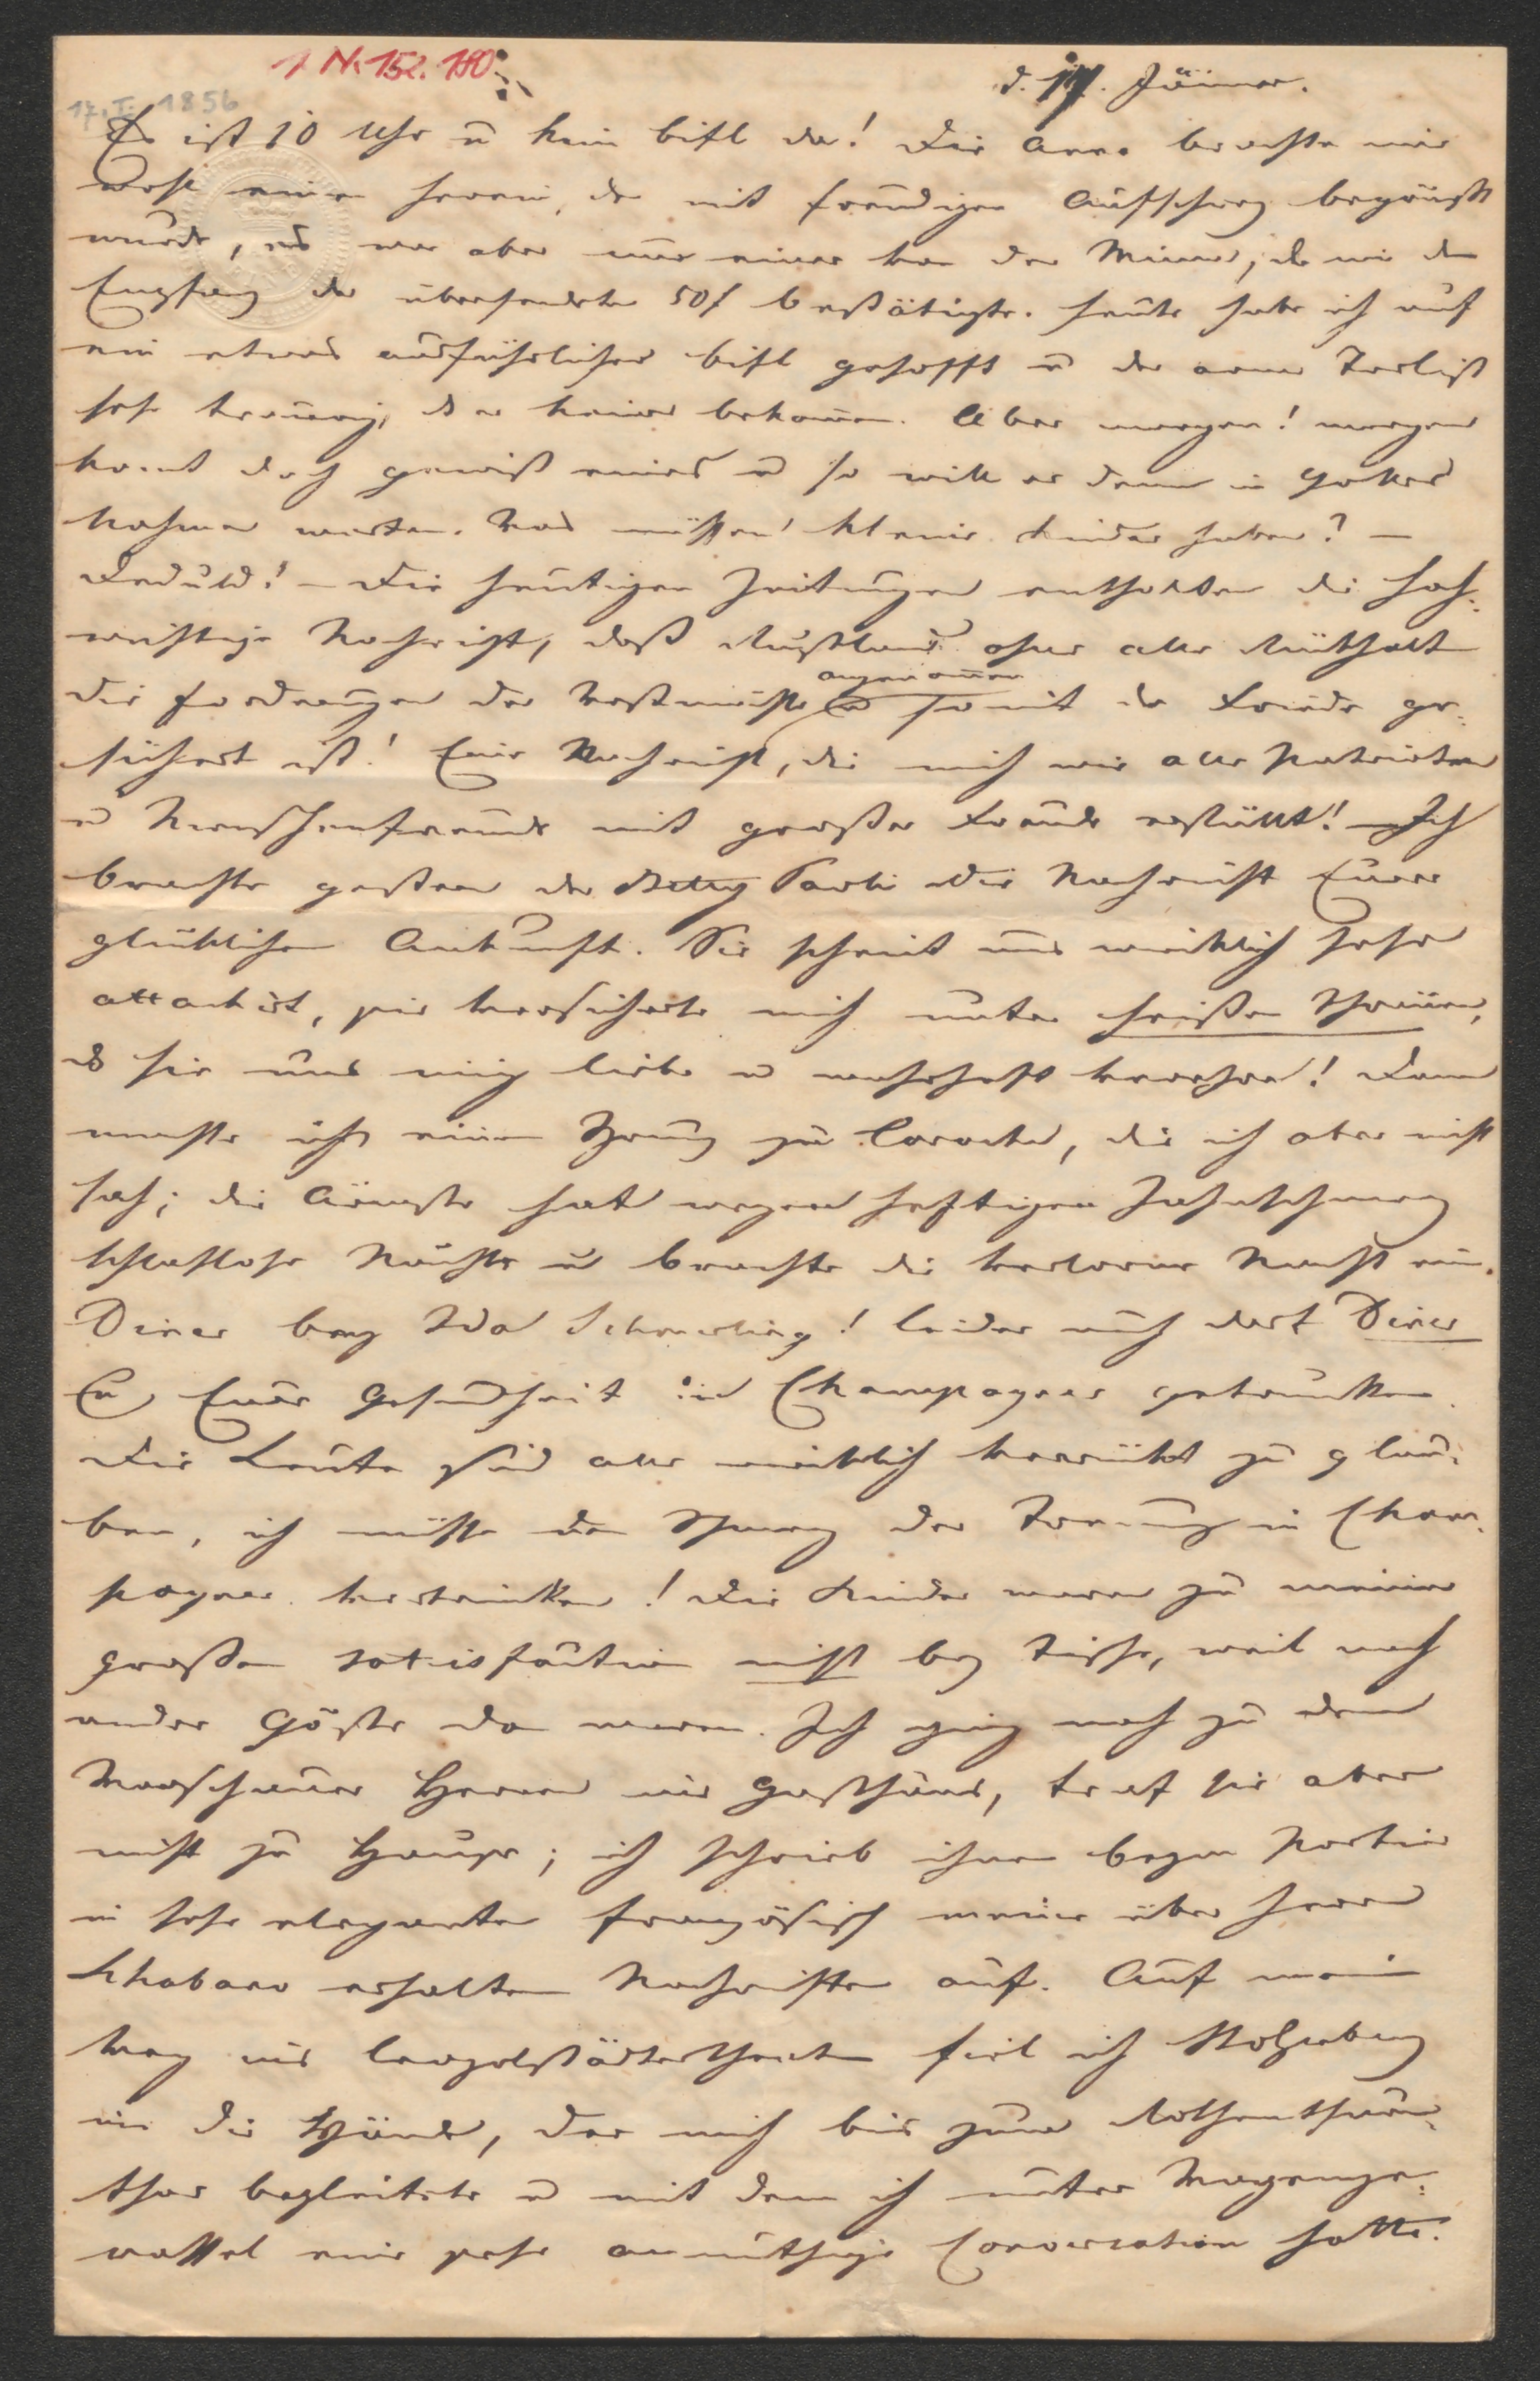 1 N. 152.180
d. 17. Jäner.
17. I. 1856
Es ist 10 Uhr u kein bifl da! Die Anna brachte mir
wohl einen herein, der mit freudigen Aufschrey begrüßt
wurde, es war aber nur einer von der Minna, der mir den
Empfang der übersendeten 50f bestätigte. Heute habe ich auf
ein etwas ausführliches bifl gehofft u der arme ist
sehr traurig, ds er keines bekomen. Aber morgen! morgen
komt doch gewiß eines u so will er denn in Gottes
Nahmen warten. Was müssen kleine Kinder haben? –
Geduld! – Die heutigen Zeitungen enthalten die hoch=
wichtige Nachricht, daß Rußland ohne alle Rükhalt
die Forderungen der Westmächte angenomen u somit der Friede ge=
sichert ist! Eine Nachricht, die mich wie alle Patrioten
u Menschenfreunde mit großer Freude erfüllt! – Ich
brachte gestern der Betty Paoli die Nachricht Eurer
glüklichen Ankunft. Sie scheint uns wirklich sehr
attachirt, sie versicherte mich unter heißen Thränen,
ds sie uns innig liebe u wahrhaft verehre! Dann
machte ich einen Sprung zu Laroche, die ich aber nicht
sah; die Ärmste hat wegen heftigen Zahnschmerz
schlaflose Nächte u brachte die verlorene Nacht ein.
Diner bey Ida Schmerling! leider auch dort Diner
u Eure Gesundheit in Champagner getrunken.
Die Leute sind alle wirklich verrükt zu glau=
ben, ich müsse den Schmerz der Trennung in Cham=
pagner vertrinken! Die Kinder waren zu meiner
großen satisfaction nicht bey Tische, weil noch
andere Gäste da waren. Ich ging noch zu den
Warschauer Herren ins Gasthaus, traf sie aber
nicht zu Hause; ich schrieb ihnen beym Portier
in sehr eleganten französisch meine über Herrn
erhaltenen Nachrichten auf. Auf mein
Weg ins Leopoldstädtertheater fiel ich Holzenberg
in die Hände, der mich bis zum Rothenthurm=
thor begleitete u mit dem ich unter Wagenge=
rassel eine sehr anmuthige Conversation hatte.